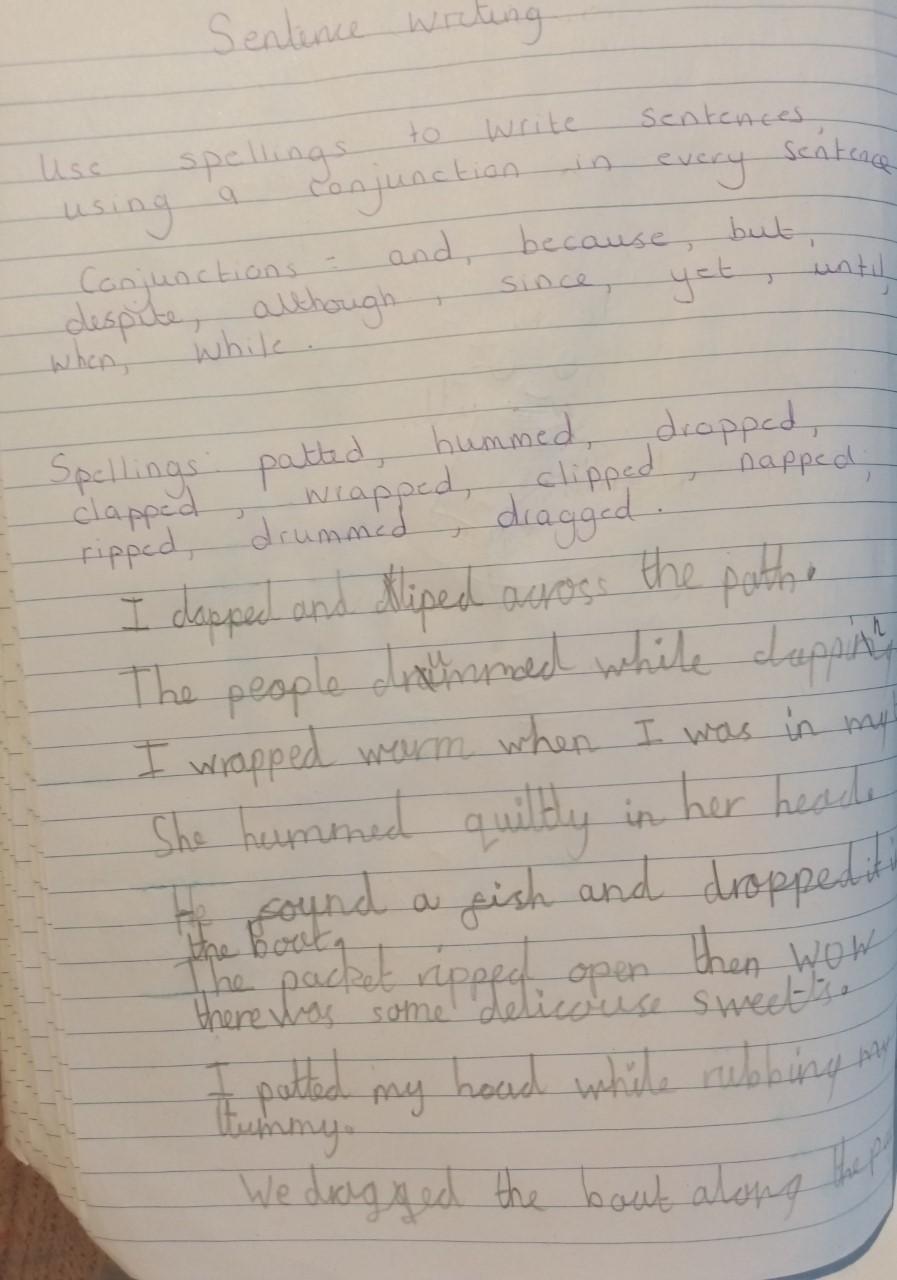 Sentence Writing
Use spellings to write sentences,
using a conjunction in every sentence
Conjunctions = and, because, but,
despite, although, since, yet, until,
when, while.
Spellings: patted, hummed, dropped,
clapped, wrapped, clipped, napped,
ripped, drummed, dragged.
I clapped and across the path.
The people drummed while
I wrapped warm when I was in my
She hummed quiltly in her head.
He found a fish and dropped it
the boat.
The packet ripped open then wow
there was some delicouse sweets.
I patted my head while rubbing my
tummy.
We dragged the boat along the